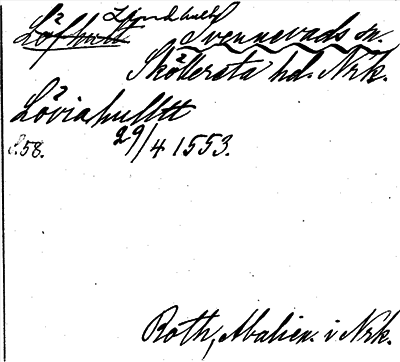 Löfhult Lindhult Svennevads sn.
Sköllersta hd. Nrk.
Löviahulltt
s. 58. 29/4 1553.
Roth, Abalien. i Nrk.